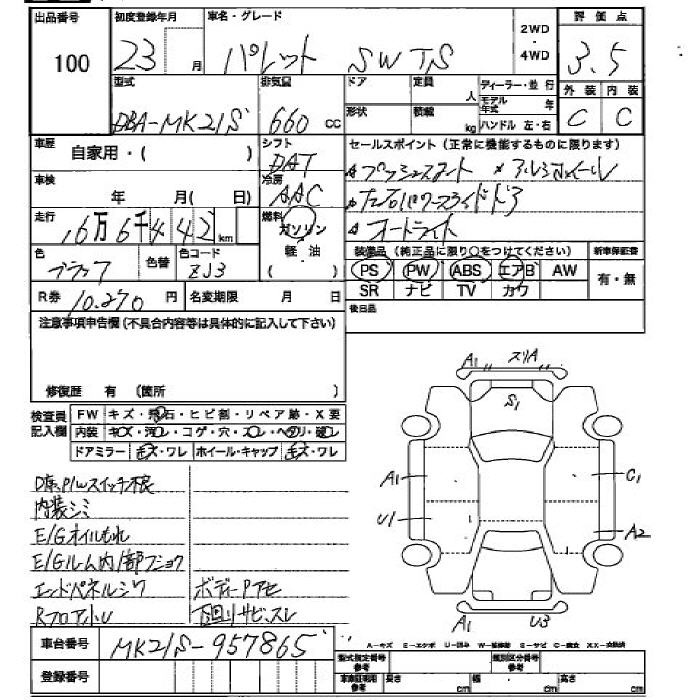 出品番号 初度登録年月 車名・グレード 2WD 評価点
100 23 月 パレット SW TS ・ 4WD 3.5
型式 排気量 ドア 定員 人 ディーラー・並行 外装 内装
DBA-MK21S 660 cc 形状 積載 kg モデル年式 年 C C
ハンドル 左・右
車歴 自家用・( ) シフト DAT セールスポイント(正常に機能するものに限ります)
車検 年 月( 日) 冷房 AAC プッシュスタート アルミホイール
走行 16万6千442 km 燃料 ガソリン 左右パワースライドドア
軽・油 オートライト
( )
色 ブラック 色替 色コード ZJ3 装備品(純正品に限り○をつけてください) 新車保証書
PS PW ABS エアB AW 有・無
SR ナビ TV カワ
R券 10.270 円 名変期限 月 日 後日品
注意事項申告欄(不具合内容等は具体的に記入して下さい)
修復歴 有 (箇所 )
検査員記入欄 FW キズ・飛石・ヒビ割・リペア跡・X要
内装 キズ・汚レ・コゲ・穴・スレ・ヘタリ・破レ
ドアミラー キズ・ワレ ホイール・キャップ キズ・ワレ
A1 スリA
S1
A1 C1
U1 A2
A1 U3
D席P/Wスイッチ不良
内装シミ
E/Gオイルもれ
E/Gルーム内1部フショク
エンドパネルシワ ボディーPアセ
下回りサビ、スレ
車台番号 MK21S-957865
A-キズ E-エクボ U-凹み S-サビ
登録番号 型式指定番号参考 類別区分番号参考
車庫証明用参考 長さ cm 幅 cm 高さ cm